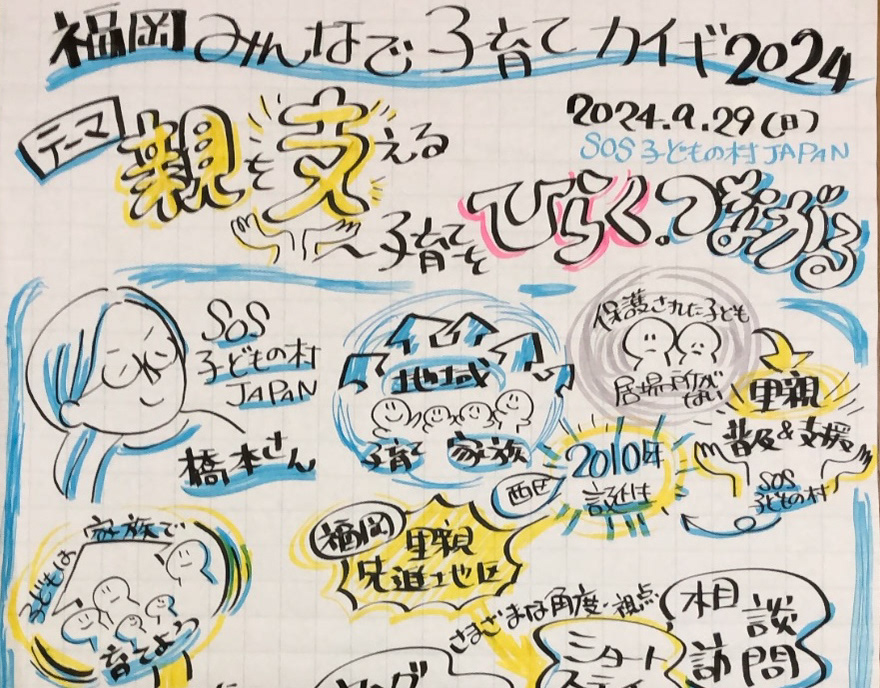 福岡みんなで子育てカイギ2024
テーマ
親を支える
2024.9.29(日)
SOS子どもの村JAPAN
〜子育てをひらく.つながる
SOS
子どもの村
JAPAN
橋本さん
地域
子育て 家族
保護された子ども
居場所がない
里親
普及&支援
SOS
子どもの村
2010年
誕生
西区
福岡
里親
先進地区
子どもは
家族で
育てよう
さまざまな角度・視点
相談
訪問
ショート
ステイ